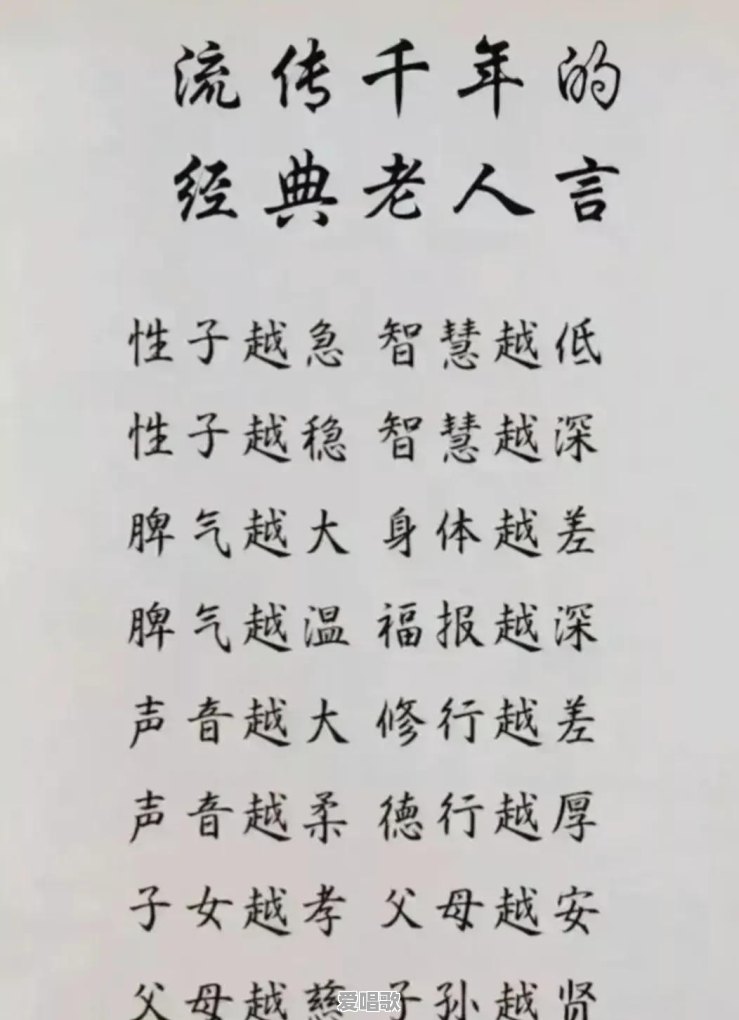 流传千年的
经典老人言
性子越急 智慧越低
性子越稳 智慧越深
脾气越大 身体越差
脾气越温 福报越深
声音越大 修行越差
声音越柔 德行越厚
子女越孝 父母越安
父母越慈 子孙越贤
爱唱歌